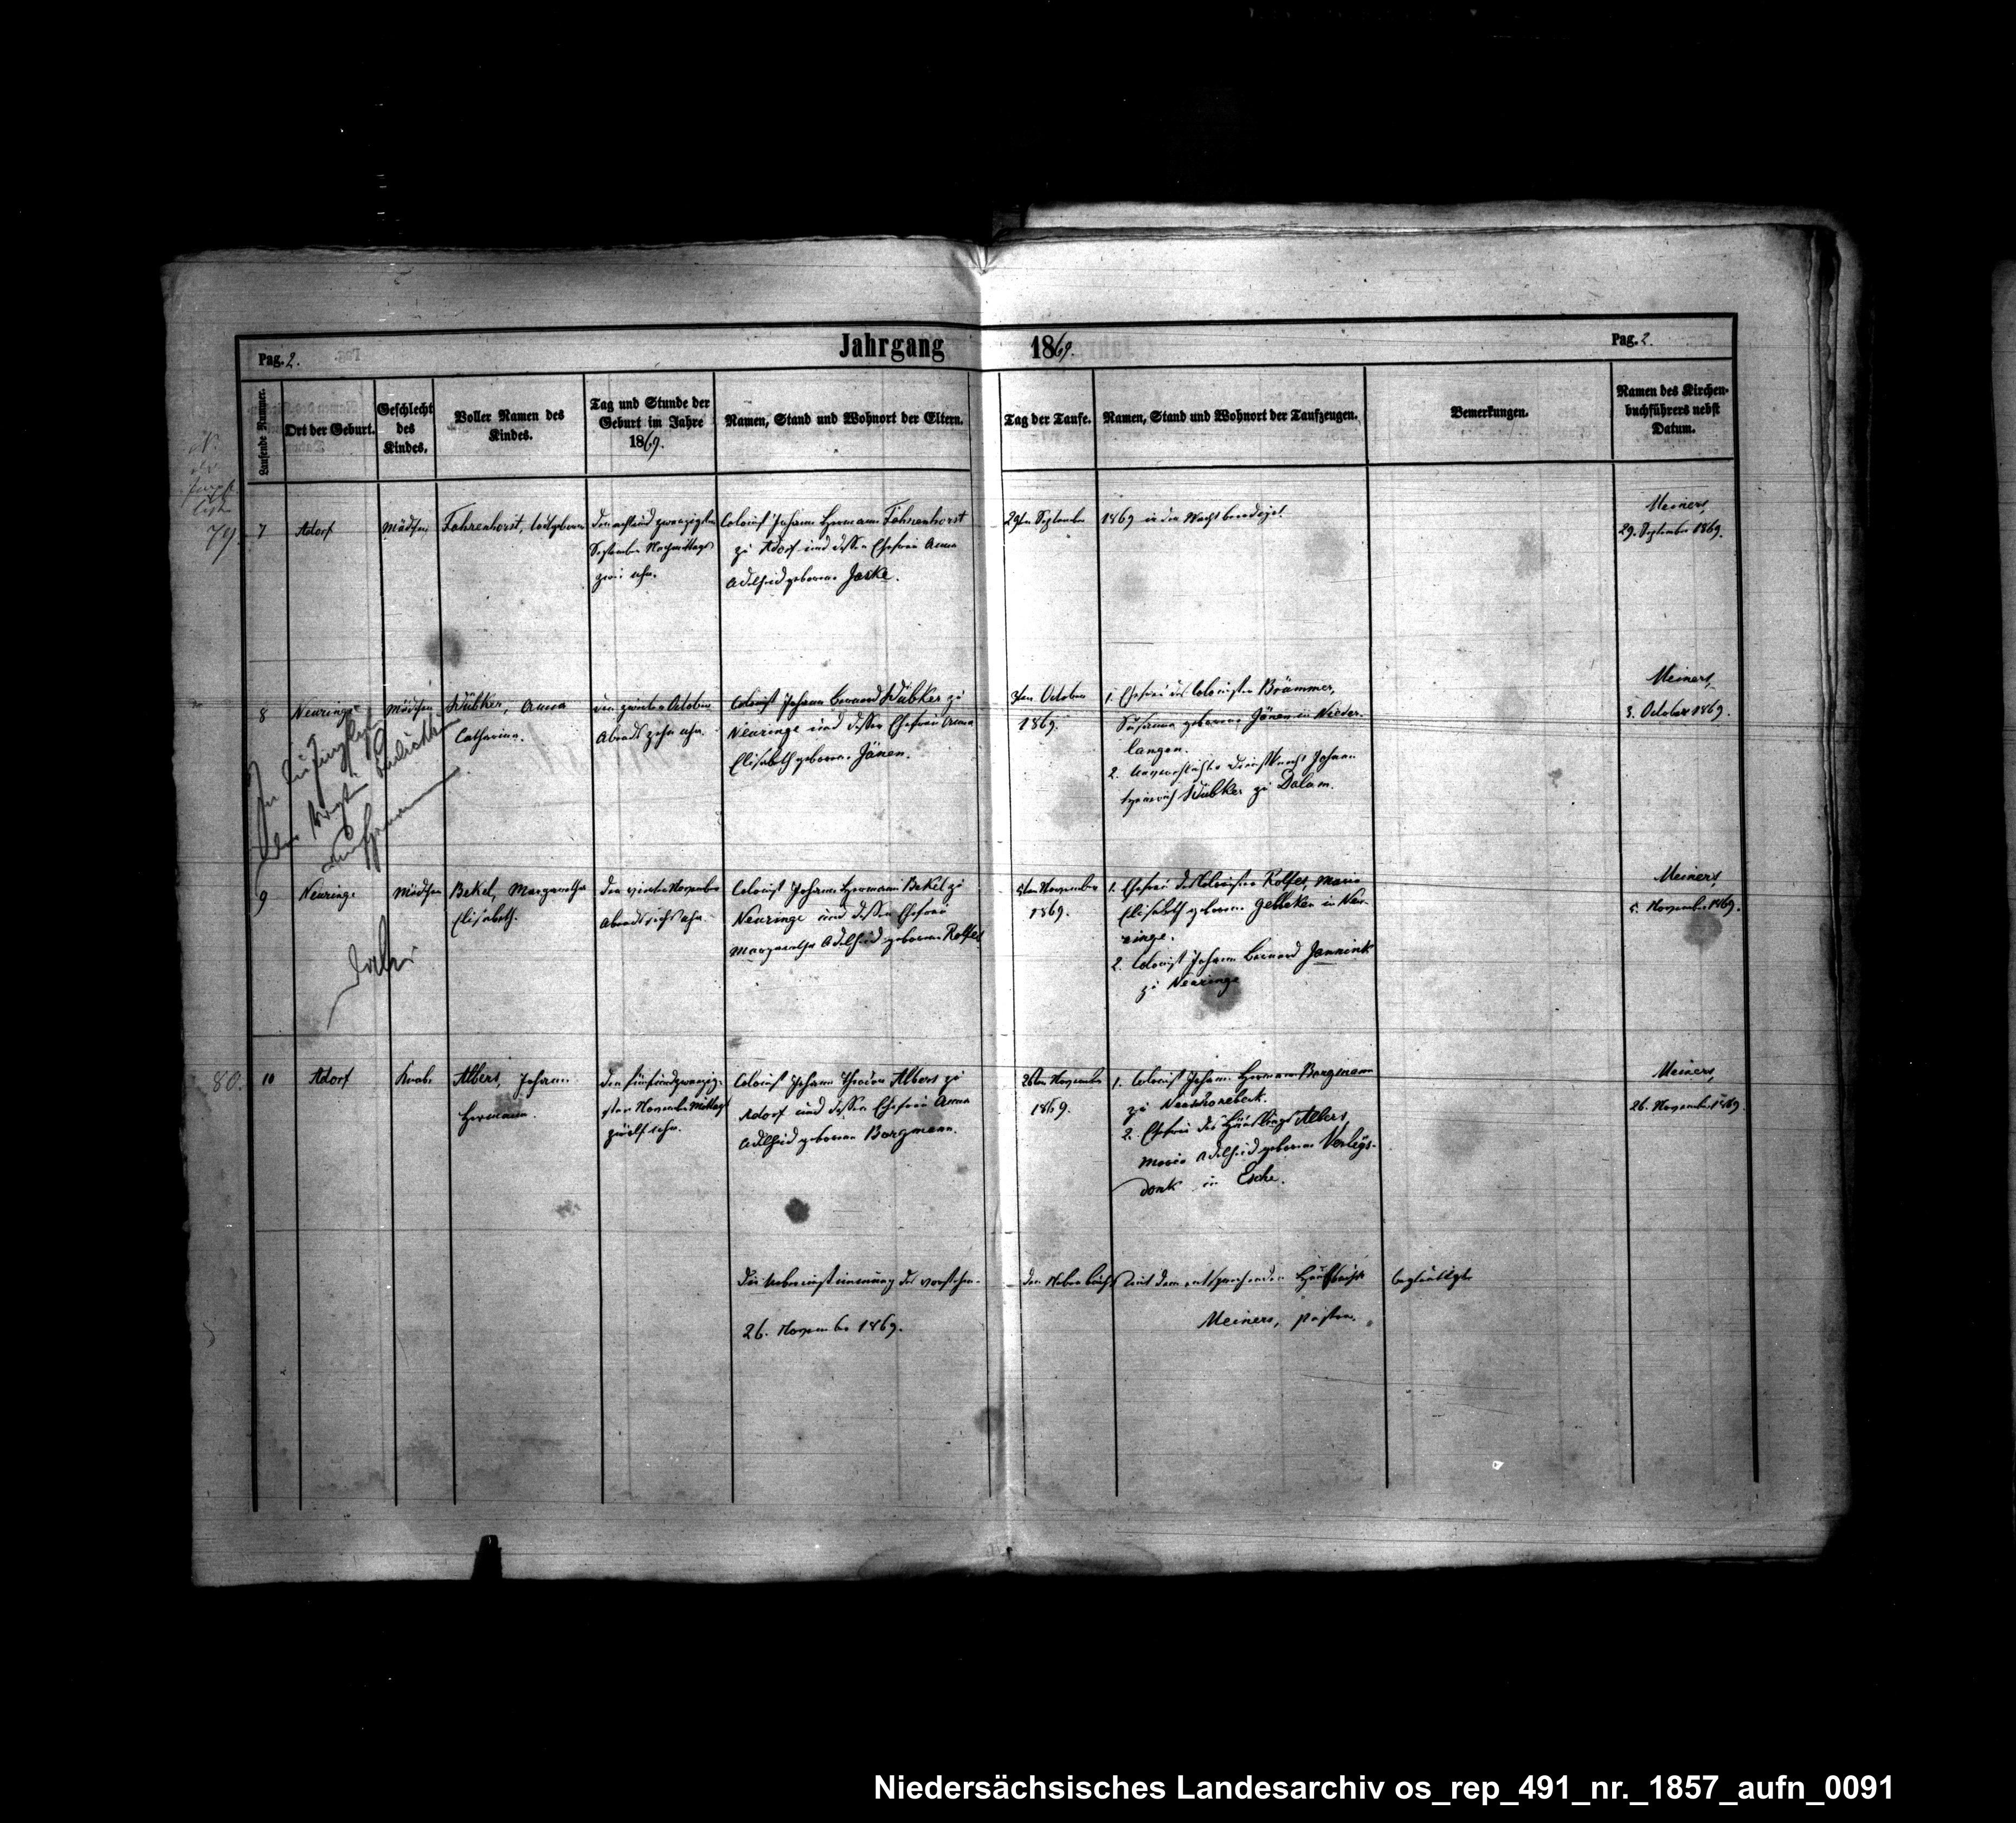 Jahrgang 1869.
Pag. 2.
Pag. 2.
Laufende Nummer.
Ort der Geburt.
Geschlecht
des
Kindes.
Voller Namen des
Kindes.
Tag und Stunde der
Geburt im Jahre
1869.
Namen, Stand und Wohnort der Eltern.
Tag der Taufe.
Namen, Stand und Wohnort der Taufzeugen.
Bemerkungen.
Namen des Kirchen-
buchführers nebst
Datum.
79.
7
Adorf
Mädchen
Fahrenhorst, todtgeboren
den achtundzwanzigsten
September Nachmittags
zwei Uhr.
Colonist Johann Hermann Fahrenhorst
zu Adorf und dessen Ehefrau Anna
Adelheid geborene Jaske.
29ten September
1869 in der Nacht beerdigt.
Meiners,
29. September 1869.
8
Neuringe
Mädchen
Wübker, Anna
Catharina.
den zweiten October
Abends zehn Uhr.
Colonist Johann Bernard Wübker zu
Neuringe und dessen Ehefrau Anna
Elisabeth geborene Jänen.
3ten October
1869.
1. Ehefrau des Colonisten Brümmer,
Susanna geborene Jänen in Nieder-
langen.
2. Unverehlichte Dienstknecht Johann
Heinrich Wübker zu Dalum.
Meiners,
3. October 1869.
9
Neuringe
Mädchen
Bekel, Margaretha
Elisabeth.
den vierten November
Abends sechs Uhr.
Colonist Johann Hermann Bekel zu
Neuringe und dessen Ehefrau
Margaretha Adelheid geborene Rolfes
5ten November
1869.
1. Ehefrau des Colonisten Rolfes, Maria
Elisabeth geborene Gebbeken in Neu-
ringe.
2. Colonist Johann Bernard Jannink
zu Neuringe
Meiners,
5. November 1869.
80.
10
Adorf
Knabe
Albers, Johann
Hermann.
den fünfundzwanzig-
sten November Mittags
zwölf Uhr.
Colonist Johann Theodor Albers zu
Adorf und dessen Ehefrau Anna
Adelheid geborene Borgmann.
26ten November
1869.
1. Colonist Johann Hermann Borgmann
zu
2. Ehefrau des Häuslings Albers,
Maria Adelheid geborene
in Esche.
Meiners,
26. November 1869.
Die Uebereinstimmung des vorstehen-
den Nebenbuchs mit dem entsprechenden Hauptbuche
26. November 1869.
Meiners, Pastor.
Niedersächsisches Landesarchiv os_rep_491_nr._1857_aufn_0091